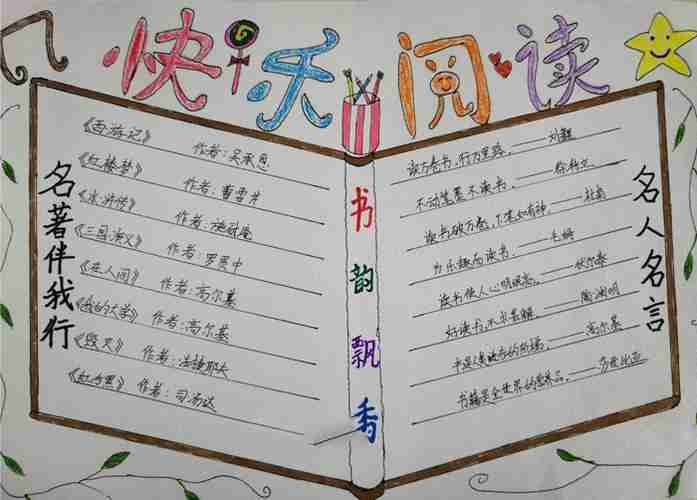 快乐阅读
名著伴我行
《西游记》 作者:吴承恩
《红楼梦》 作者:曹雪芹
《水浒传》 作者:施耐庵
《三国演义》 作者:罗贯中
《在人间》 作者:高尔基
《我的大学》 作者:高尔基
《毁灭》 作者:法捷耶夫
《红与黑》 作者:司汤达
书韵飘香
读万卷书,行万里路。——刘彝
不动笔墨不读书。——徐特立
读书破万卷,下笔如有神。——杜甫
为乐趣而读书。——毛姆
读书使人心明眼亮。——伏尔泰
好读书,不求甚解。——陶渊明
书是人类进步的阶梯。——高尔基
书籍是全世界的营养品。——莎士比亚
名人名言